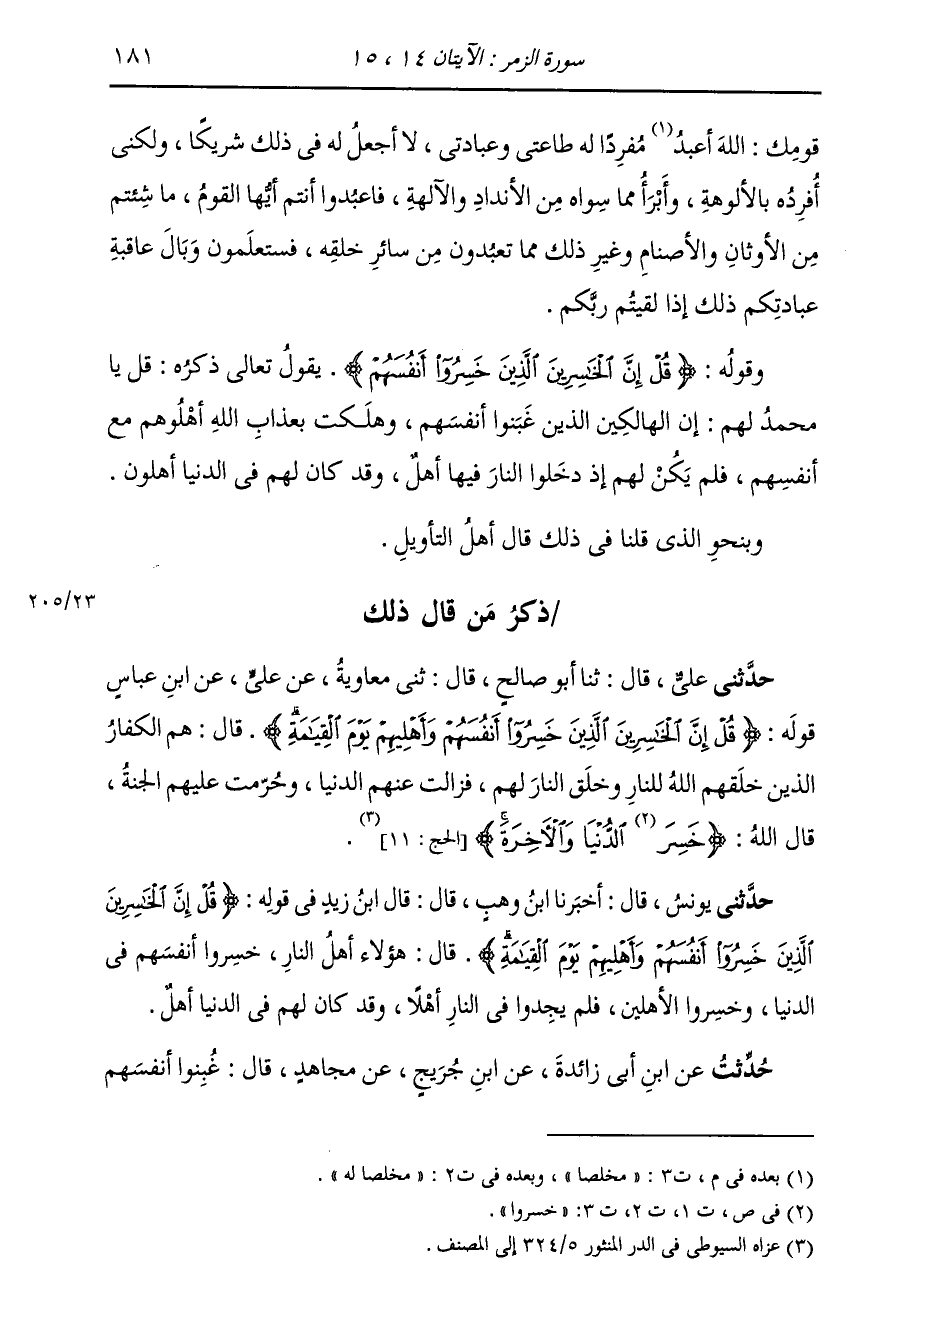 سورة الزمر : الآيتان ١٤ ، ١٥ ١٨١
قومِك : اللهَ أعبدُ(١) مُفرِدًا له طاعتى وعبادتى ، لا أجعلُ له فى ذلك شريكًا ، ولكنى
أُفرِدُه بالألوهةِ ، وأَبْرَأُ مما سِواه مِن الأندادِ والآلهةِ ، فاعبُدوا أنتم أيُّها القومُ ، ما شِئتم
مِن الأوثانِ والأصنامِ وغيرِ ذلك مما تعبُدون مِن سائرِ خلقِه ، فستعلَمون وَبَالَ عاقبةِ
عبادتِكم ذلك إذا لقيتُم ربَّكم .
وقولُه : ﴿ قُلْ إِنَّ ٱلْخَٰسِرِينَ ٱلَّذِينَ خَسِرُوٓا۟ أَنفُسَهُمْ ﴾ . يقولُ تعالى ذكرُه : قل يا
محمدُ لهم : إن الهالكِين الذين غَبَنوا أنفسَهم ، وهلَكت بعذابِ اللهِ أهْلُوهم مع
أنفسِهم ، فلم يَكُنْ لهم إذ دخَلوا النارَ فيها أهلٌ ، وقد كان لهم فى الدنيا أهلون .
وبنحوِ الذى قلنا فى ذلك قال أهلُ التأويلِ .
/ذكرُ مَن قال ذلك
٢٠٥/٢٣
حدَّثنى علىٌّ ، قال : ثنا أبو صالحٍ ، قال : ثنى معاويةُ ، عن علىٍّ ، عن ابنِ عباسٍ
قولَه : ﴿ قُلْ إِنَّ ٱلْخَٰسِرِينَ ٱلَّذِينَ خَسِرُوٓا۟ أَنفُسَهُمْ وَأَهْلِيهِمْ يَوْمَ ٱلْقِيَٰمَةِۗ ﴾ . قال : هم الكفارُ
الذين خلَقهم اللهُ للنارِ وخلَق النارَ لهم ، فزالت عنهم الدنيا ، وحُرّمت عليهم الجنةُ ،
قال اللهُ : ﴿ خَسِرَ (٢) ٱلدُّنْيَا وَٱلْآخِرَةَۚ ﴾ [الحج : ١١](٣) .
حدَّثنى يونسُ ، قال : أخبَرنا ابنُ وهبٍ ، قال : قال ابنُ زيدٍ فى قولِه : ﴿ قُلْ إِنَّ ٱلْخَٰسِرِينَ
ٱلَّذِينَ خَسِرُوٓا۟ أَنفُسَهُمْ وَأَهْلِيهِمْ يَوْمَ ٱلْقِيَٰمَةِۗ ﴾ . قال : هؤلاء أهلُ النارِ ، خسِروا أنفسَهم فى
الدنيا ، وخسِروا الأهلين ، فلم يجِدوا فى النارِ أهْلًا ، وقد كان لهم فى الدنيا أهلٌ .
حُدِّثتُ عن ابنِ أبى زائدةَ ، عن ابنِ جُرَيجٍ ، عن مجاهدٍ ، قال : غُبِنوا أنفسَهم
(١) بعده فى م ، ت٣ : « مخلصا » ، وبعده فى ت٢ : « مخلصا له » .
(٢) فى ص ، ت ١، ت ٢، ت ٣: « خسروا » .
(٣) عزاه السيوطى فى الدر المنثور ٣٢٤/٥ إلى المصنف .